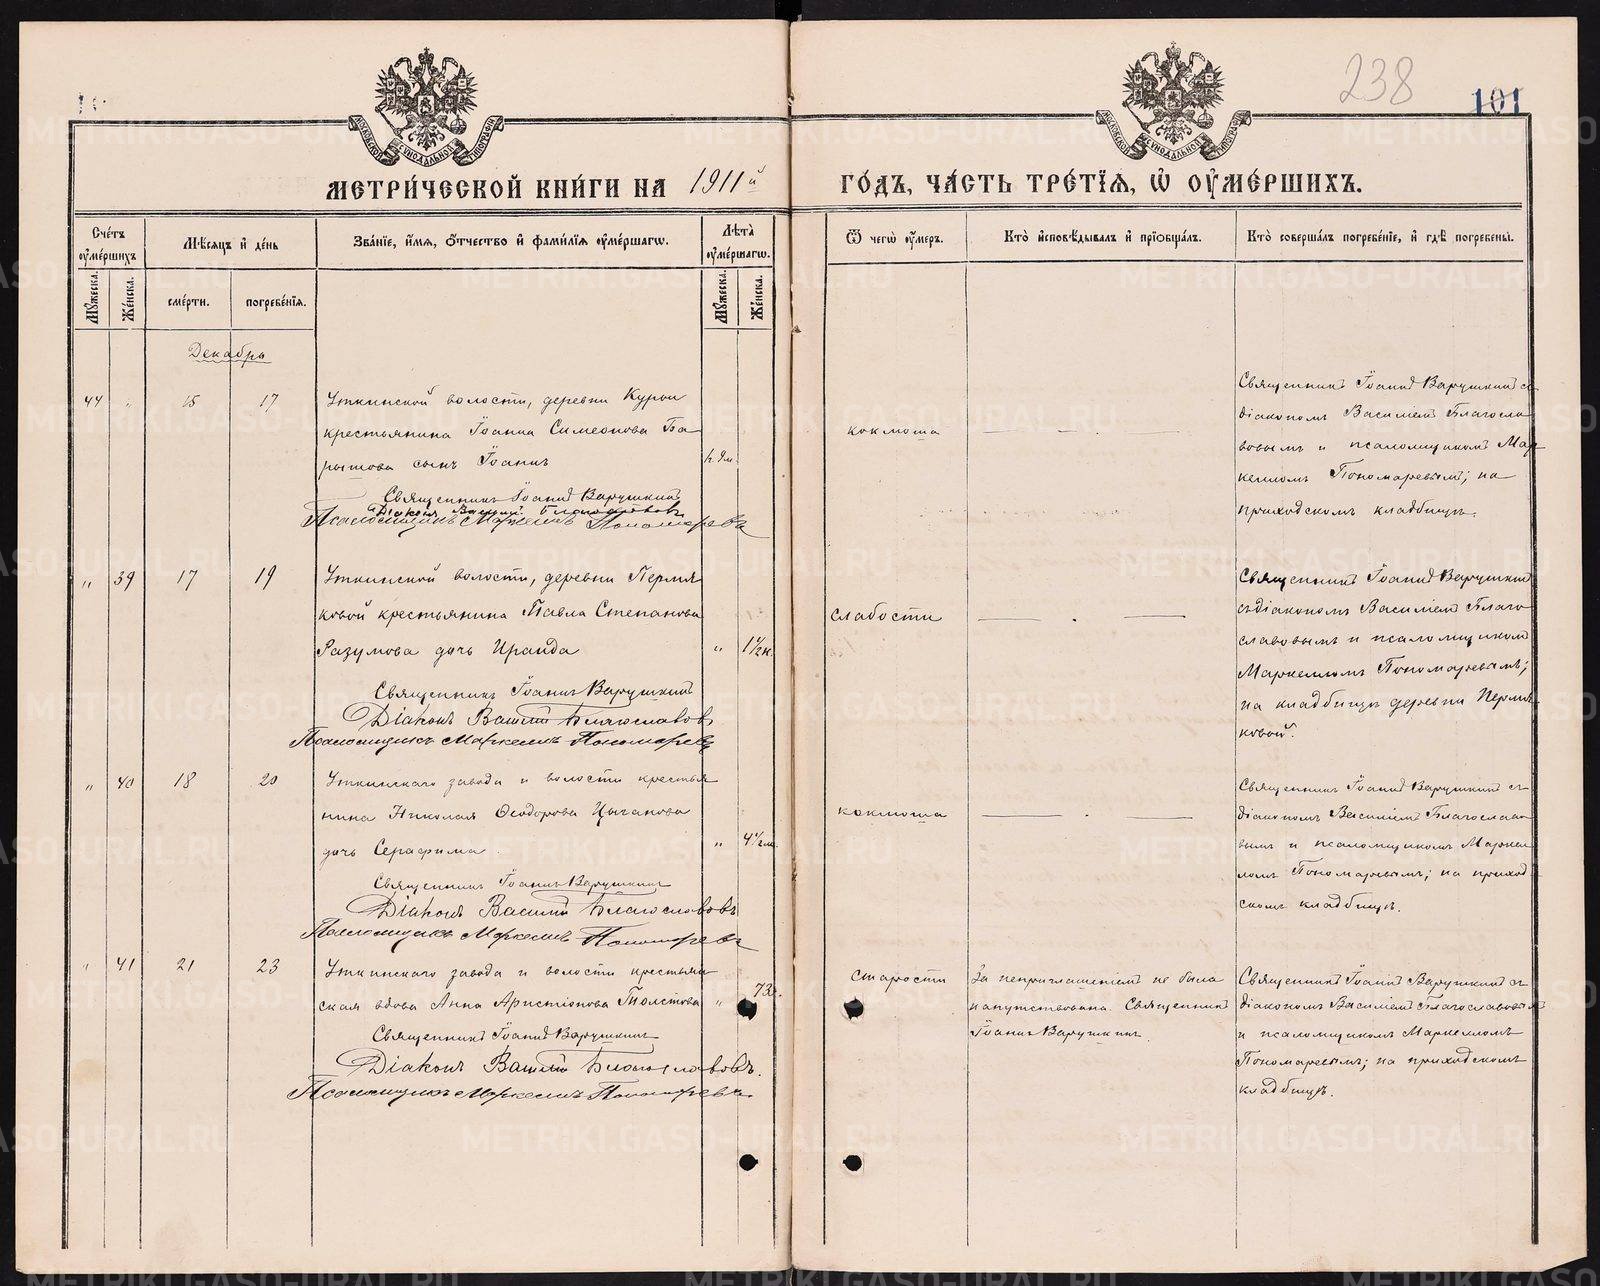 238
101
МЕТРИ́ЧЕСКОЙ КНИ́ГИ НА 1911й ГО́ДЪ, ЧА́СТЬ ТРЕ́ТЇѦ, Ѡ҆ ОУ҆МЕ́РШИХЪ.
Сче́тъ оу҆ме́ршихъ
Мꙋ́жеска.
Же́нска.
Мѣ́сяцъ и҆ де́нь
сме́рти.
погребе́нїя.
Зва́нїе, и҆́мя, ѻ҆́тчество и҆ фами́лїя оу҆ме́ршагѡ.
Лѣ́та оу҆ме́ршагѡ.
Мꙋ́жеска.
Же́нска.
Ѿ чегѡ̀ оу҆́меръ.
Кто̀ и҆сповѣ́дывалъ и҆ прїѡбща́лъ.
Кто̀ соверша́лъ погребе́нїе, и҆ гдѣ̀ погребены̀.
Декабрь
44 " 15 17
Уткинской волости, деревни Курьи
крестьянина Іоанна Симеонова Ба-
рышова сынъ Іоаннъ
Священникъ Іоаннъ Варушкинъ
Діаконъ Василій Благославовъ
Псаломщикъ Маркеллъ Пономаревъ
коклюша
Священникъ Іоаннъ Варушкинъ съ
діакономъ Василіемъ Благосла-
вовымъ и псаломщикомъ Мар-
келломъ Пономаревымъ; на
приходскомъ кладбищѣ.
" 39 17 19
Уткинской волости, деревни Пермя-
ковой крестьянина Павла Степанова
Разумова дочь Ираида
" 1½ н.
Священникъ Іоаннъ Варушкинъ
Діаконъ Василій Благославовъ
Псаломщикъ Маркеллъ Пономаревъ
слабости
Священникъ Іоаннъ Варушкинъ
съ діакономъ Василіемъ Благо-
славовымъ и псаломщикомъ
Маркелломъ Пономаревымъ;
на кладбищѣ деревни Пермя-
ковой.
" 40 18 20
Уткинскаго завода и волости крестья-
нина Николая Ѳеодорова Цыганова
дочь Серафима
" 4½ м.
Священникъ Іоаннъ Варушкинъ
Діаконъ Василій Благославовъ
Псаломщикъ Маркеллъ Пономаревъ
коклюша
Священникъ Іоаннъ Варушкинъ съ
діакономъ Василіемъ Благославо-
вымъ и псаломщикомъ Маркел-
ломъ Пономаревымъ; на приход-
скомъ кладбищѣ.
" 41 21 23
Уткинскаго завода и волости крестьян-
ская вдова Анна Аристіонова Толстова
" 73
Священникъ Іоаннъ Варушкинъ
Діаконъ Василій Благославовъ.
Псаломщикъ Маркеллъ Пономаревъ.
старости
За неприглашеніемъ не была
напутствована. Священникъ
Іоаннъ Варушкинъ.
Священникъ Іоаннъ Варушкинъ съ
діакономъ Василіемъ Благославовымъ
и псаломщикомъ Маркелломъ
Пономаревымъ; на приходскомъ
кладбищѣ.
METRIKI.GASO-URAL.RU